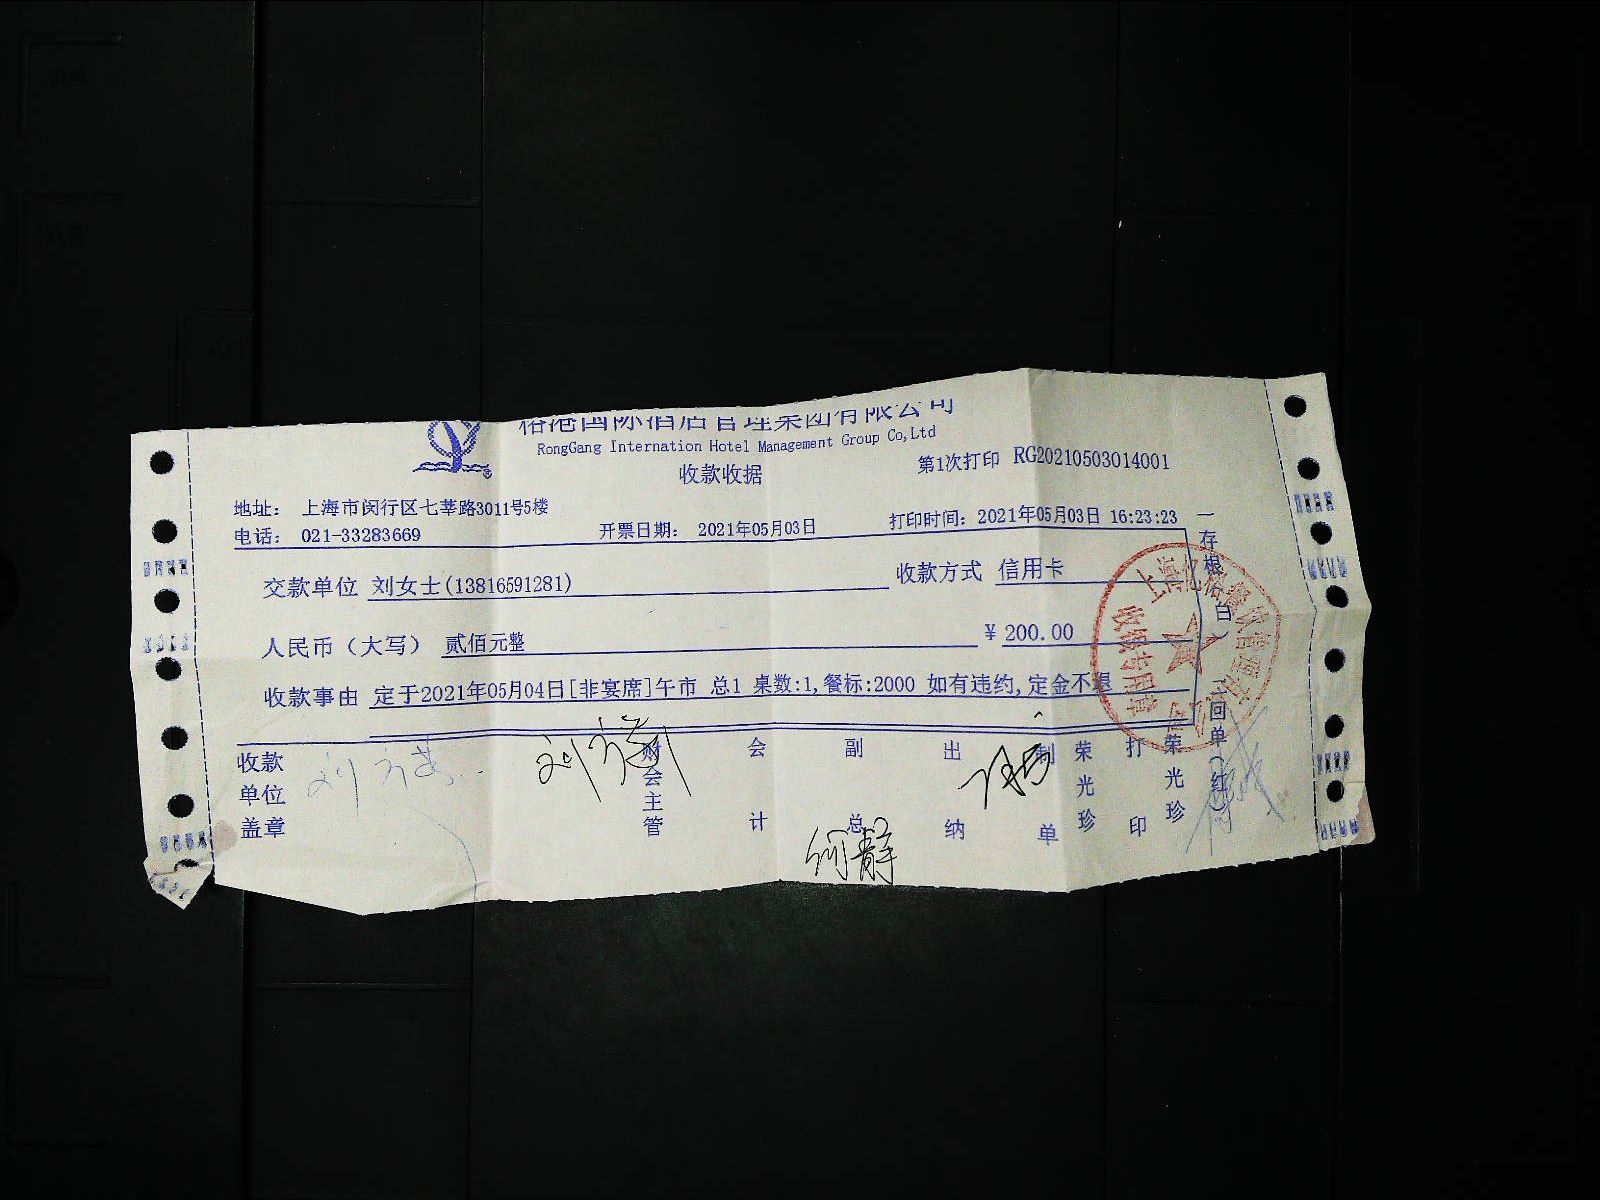 榕港国际酒店管理集团有限公司
RongGang Internation Hotel Management Group Co,Ltd
收款收据
第1次打印 RG20210503014001
地址： 上海市闵行区七莘路3011号5楼
电话： 021-33283669
开票日期： 2021年05月03日
打印时间：2021年05月03日 16:23:23
交款单位 刘女士(13816591281)
收款方式 信用卡
人民币（大写） 贰佰元整
￥200.00
收款事由 定于2021年05月04日[非宴席]午市 总1 桌数:1,餐标:2000 如有违约,定金不退
收款单位盖章
财会主管
会计
副总
何静
出纳
制单
荣光珍
打印
荣光珍
一存根（白） 二回单（红）
收银专用章